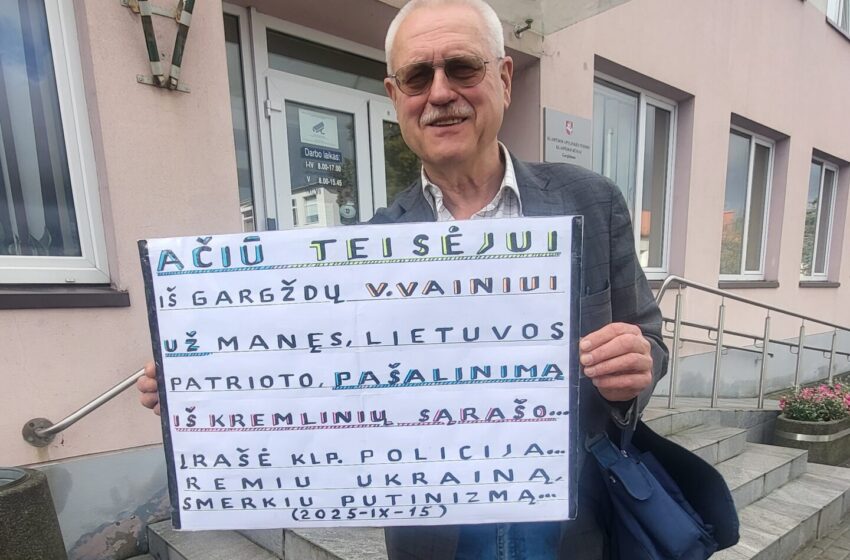 Darbo laikas:
I-IV 8.00-17.00
V 8.00-15.45
AČIŪ TEISĖJUI
IŠ GARGŽDŲ V.VAINIUI
UŽ MANĘS, LIETUVOS
PATRIOTO, PAŠALINIMĄ
IŠ KREMLINIŲ SĄRAŠO...
ĮRAŠĖ KLP. POLICIJA...
REMIU UKRAINĄ,
SMERKIU PUTINIZMĄ...
(2025-IX-15)